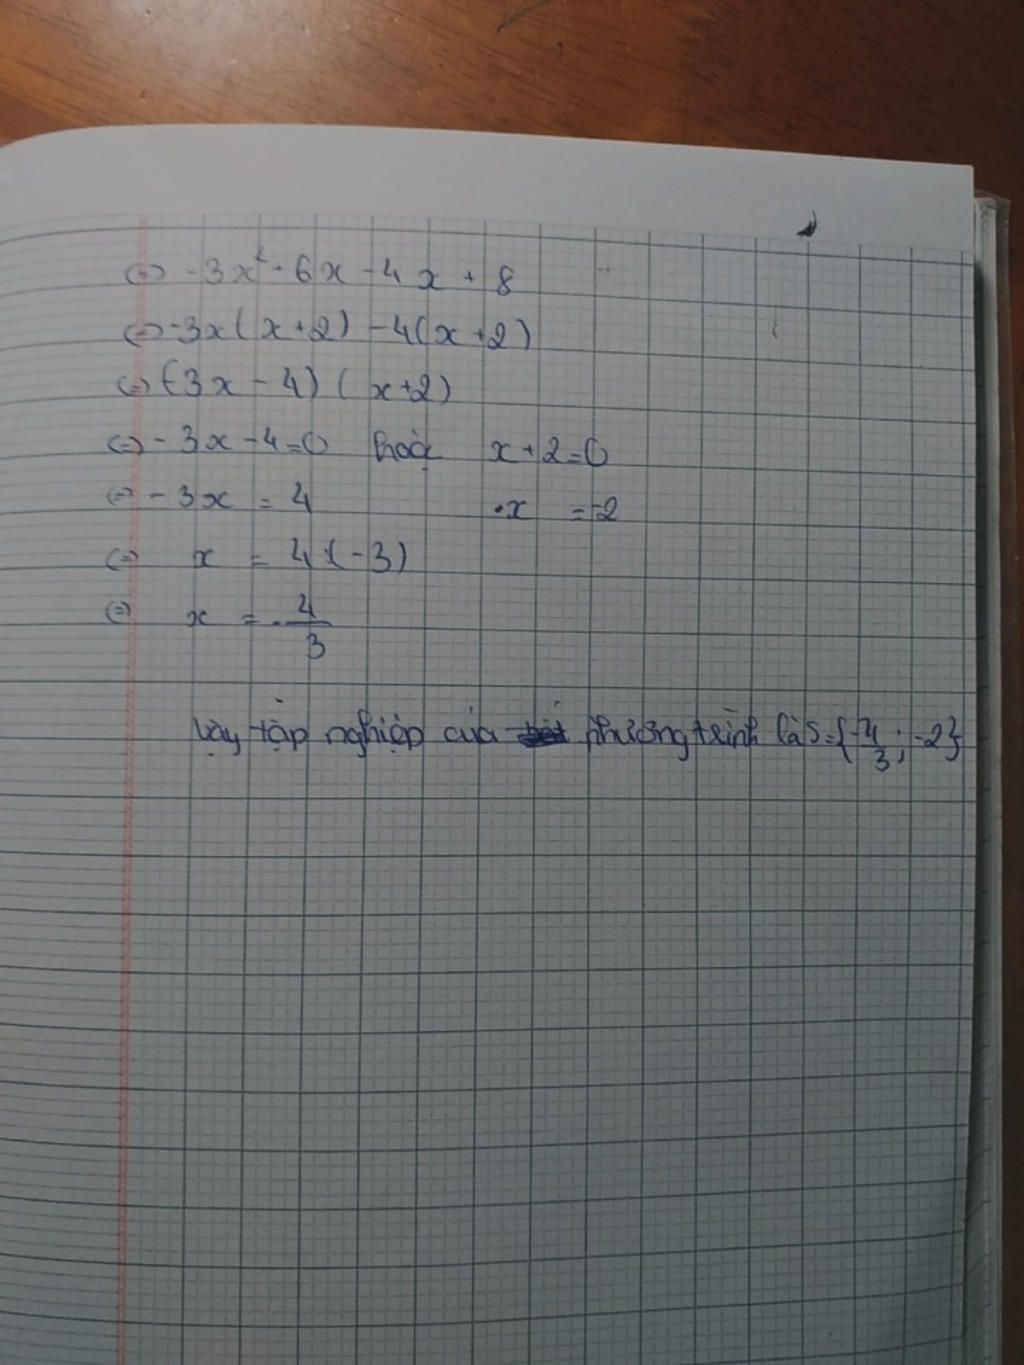 (=) -3x² - 6x - 4x + 8
(=) -3x(x+2) - 4(x+2)
(=) (-3x - 4)(x+2)
(=) -3x - 4 = 0 hoặc x + 2 = 0
(=) -3x = 4 x = -2
(=) x = 4 : (-3)
(=) x = -4/3
Vậy tập nghiệp của phương trình là S = {-4/3 ; -2}